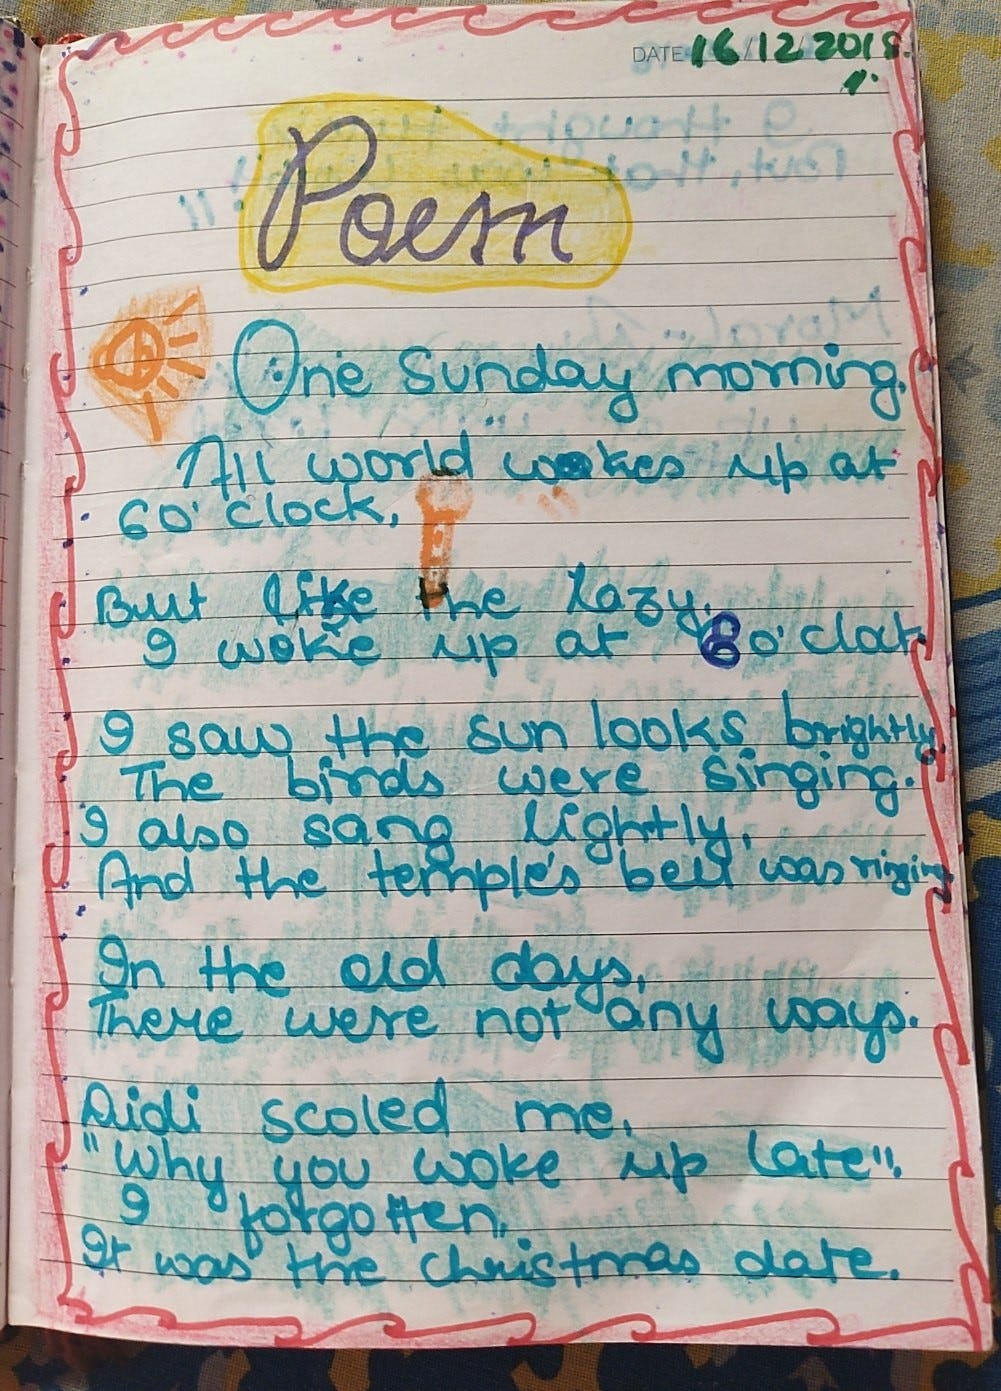 DATE 16/12/2018.
Poem
One Sunday morning,
All world wokes up at
6 o'clock,
But like the lazy,
I woke up at 8 o'clock
I saw the sun looks brightly,
The birds were singing.
I also sang lightly,
And the temple's bell was ringing
In the old days,
There were not any ways.
Didi scoled me,
"Why you woke up late".
I forgotten,
It was the christmas date.